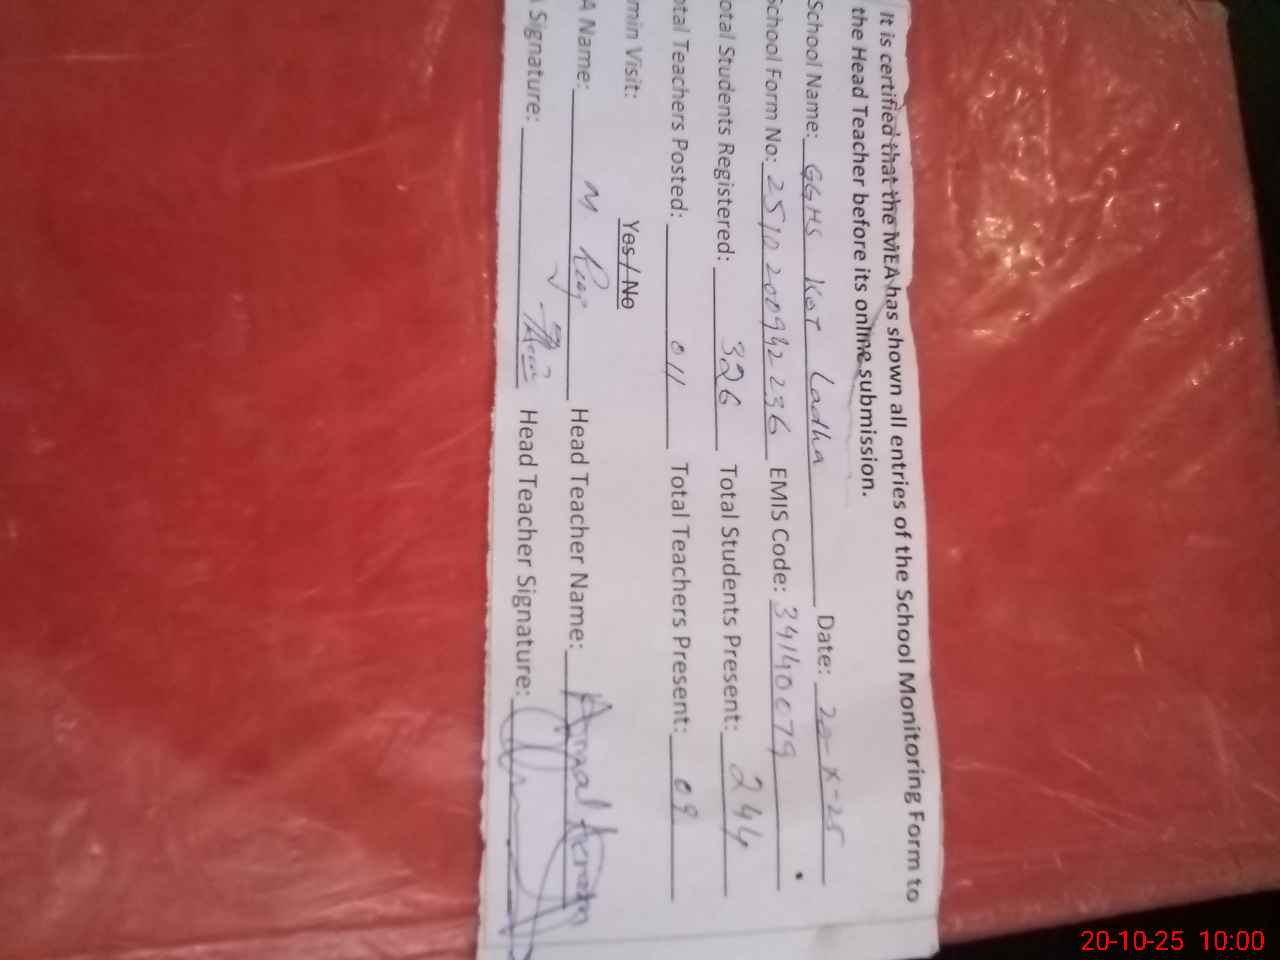 It is certified that the MEA has shown all entries of the School Monitoring Form to
the Head Teacher before its online submission.
School Name: GGHS Kot Ladha Date: 20-X-25
School Form No: 2510200942236 EMIS Code: 34140079
otal Students Registered: 326 Total Students Present: 244
otal Teachers Posted: 011 Total Teachers Present: 09
min Visit: Yes/No
A Name: M Head Teacher Name: Amal Akram
Signature: Head Teacher Signature:
20-10-25 10:00